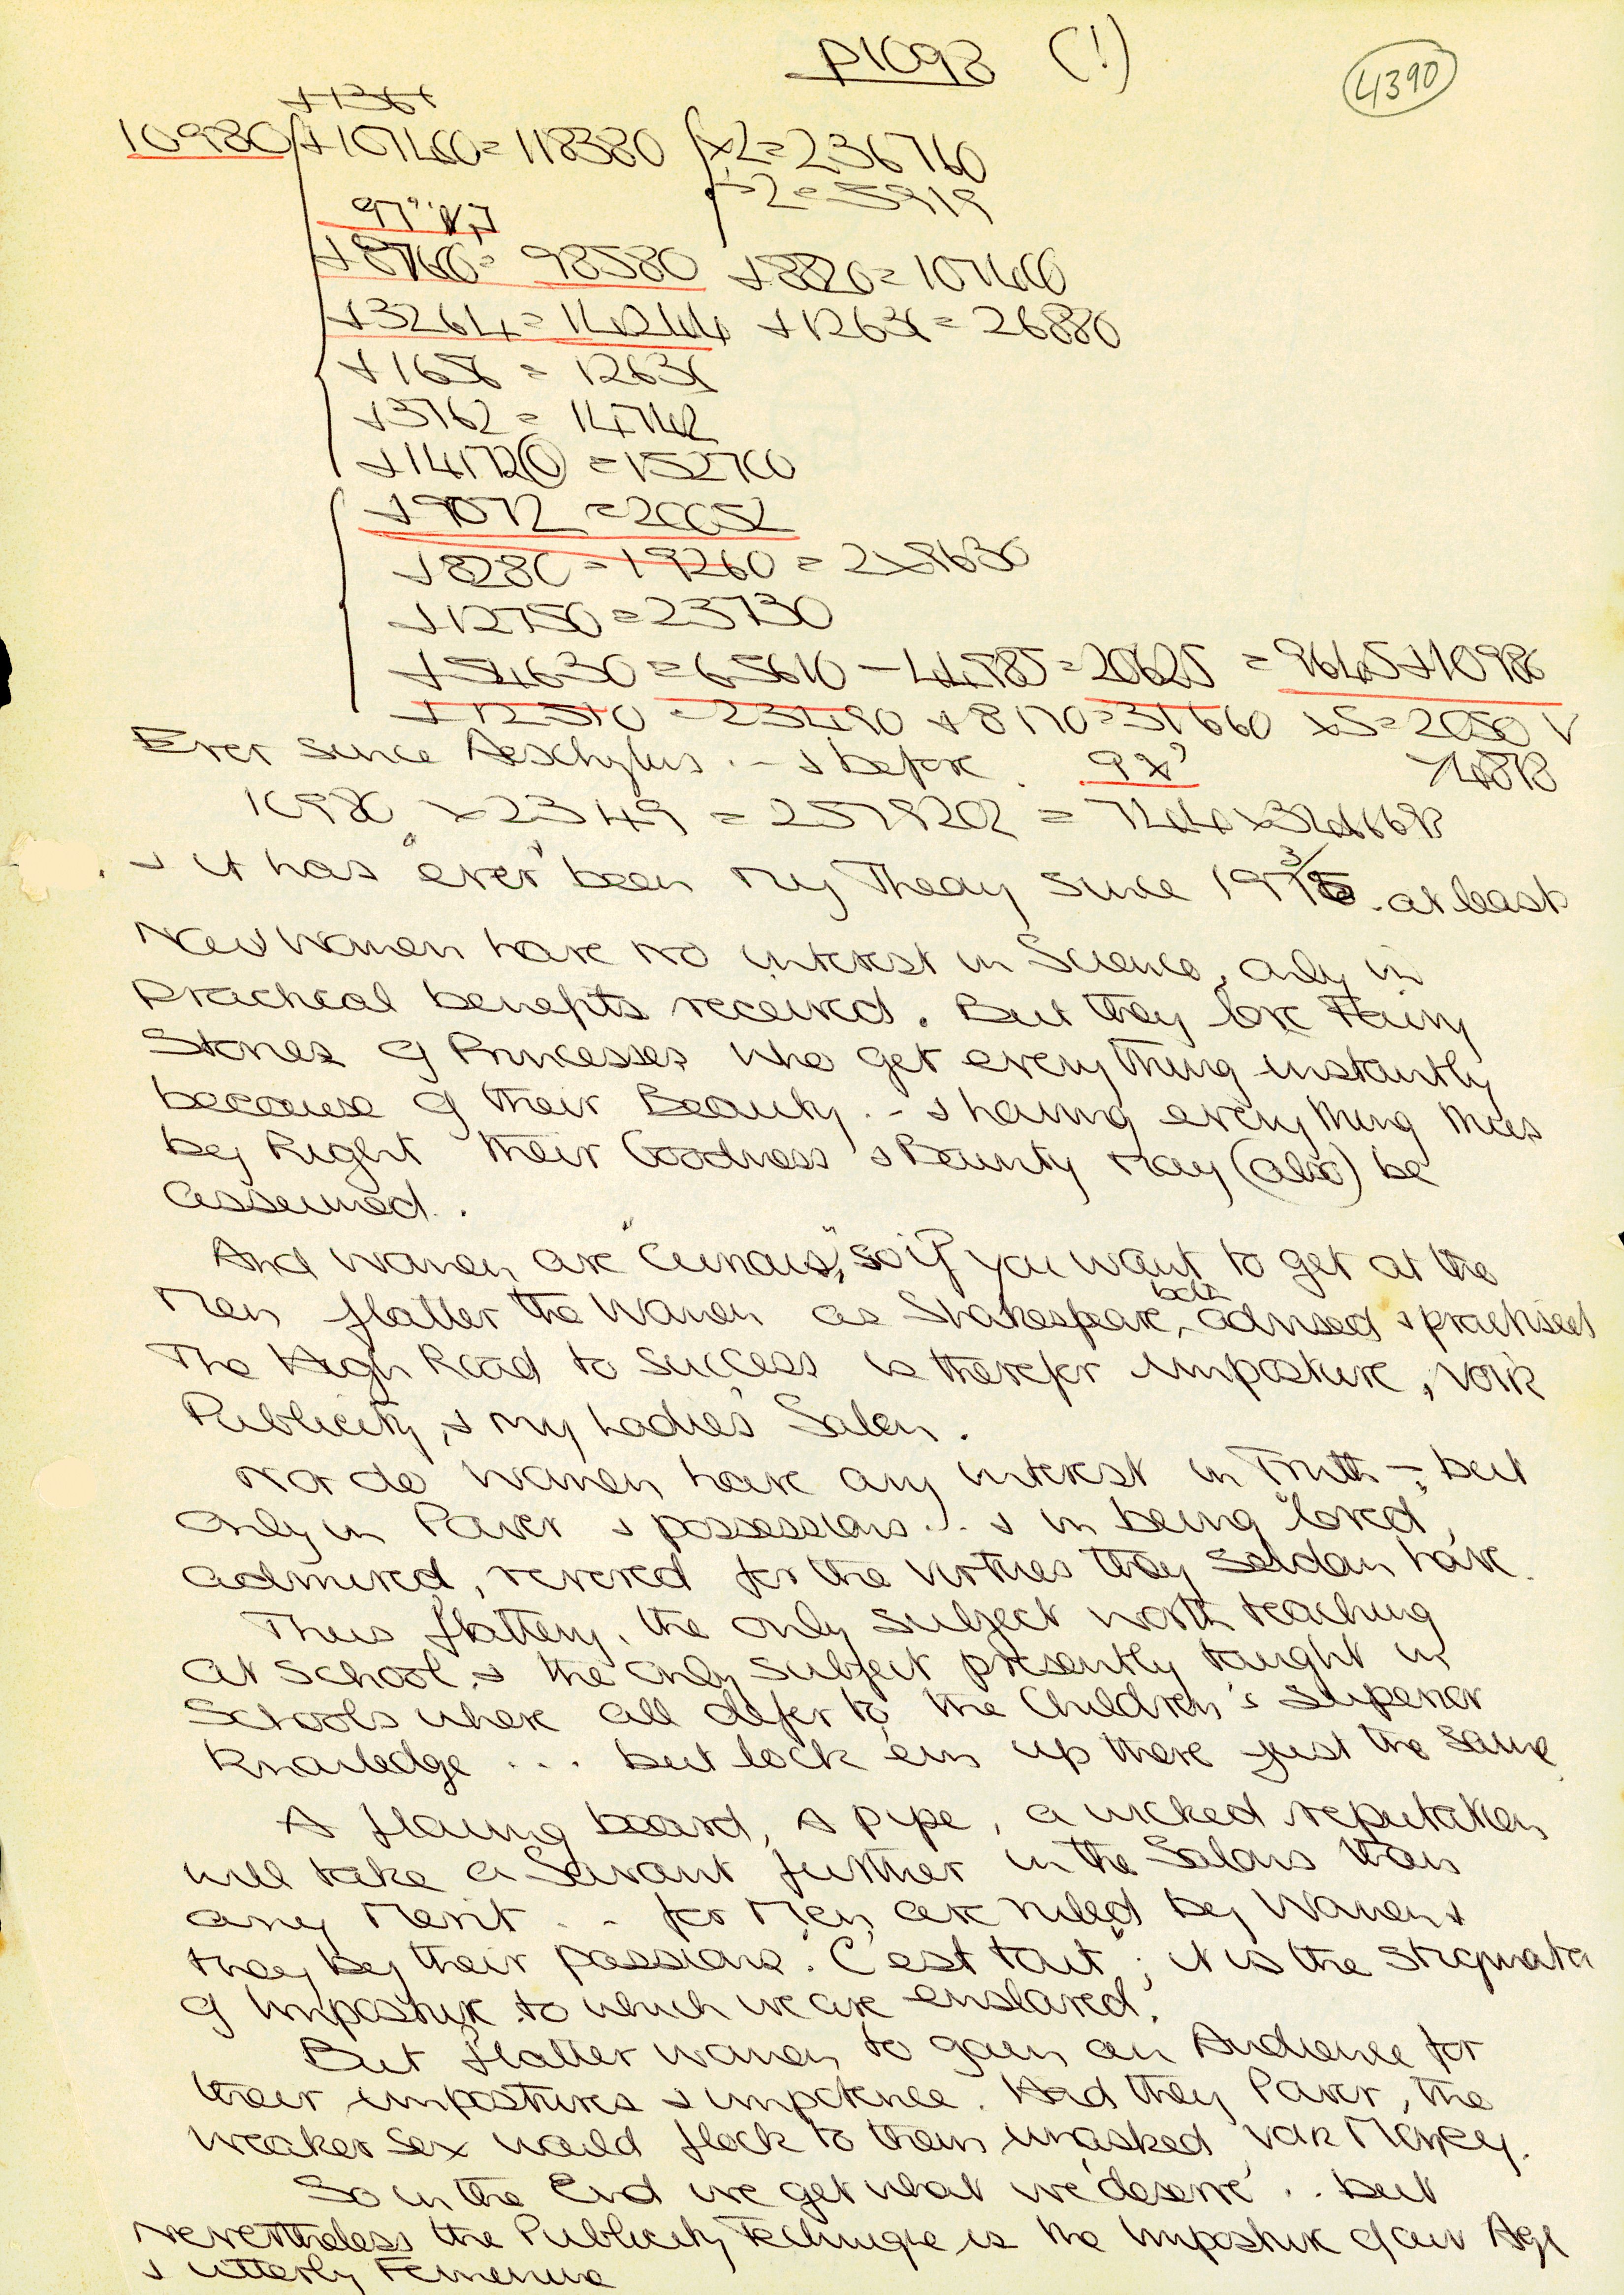 p1098 (!)
4390
+1361
10980 +107400=118380 x2=236760
÷2=5919
97" N,7
+87600= 98580 +8820=107400
+3264=14244 +12636=26880
+1656 = 12636
+3762 = 14742
+141720 =152700
+9072 =20052
+8280=19260 = 2x9630
+12750=23730
+54630=65610 -44985=20625 =9645+10980
+12510 =23490 +8170=31660
Ever since Aeschylus. - & before. 9x'
10980 x 2349 = 2579202 =
& it has "ever" been my Theory since 197 at least
Now Women have no interest in Science, only in
practical benefits received. But they love Fairy
Stories of Princesses who get everything instantly
because of their Beauty. - & having everything thus
by Right their Goodness & Bounty may (also) be
assumed.
And Women are "Curious", so if you want to get at the
Men flatter the Women as Shakespeare both advised & practised
The High Road to Success is therefor Imposture, Voir
Publicity, & my Ladies' Salon.
Nor do Women have any interest in Truth - but
only in Power & possessions... & in being "loved",
admired, revered for the Virtues they seldom have.
Thus flattery, the only subject worth teaching
at School & the only subject presently taught in
Schools where all defer to the Children's superior
knowledge ... but lock 'em up there just the same.
A flowing beard, a pipe, a wicked reputation
will take a Savant further in the Salons than
any Merit .. for Men are ruled by Women &
they by their passions. "C'est tout"; it is the Stigmata
of Imposture to which we are enslaved.
But flatter women to gain an Audience for
their impostures & impotence. Had they Power, the
weaker Sex would flock to them unasked
So in the End we get what we 'deserve' .. but
Nevertheless the Publicity Technique is the Imposture of our Age
& utterly Feminine